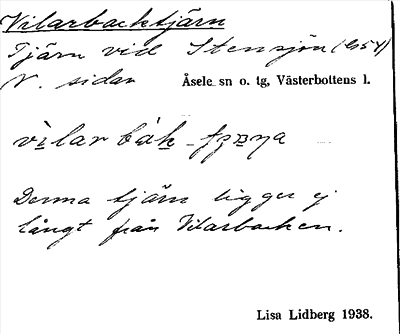 Vilarbacktjärn
Tjärn vid Stensjön (G54)
N. sidan Åsele sn o. tg, Västerbottens l.
vilarbak
Denna tjärn ligger ej
långt från Vilarbacken.
Lisa Lidberg 1938.